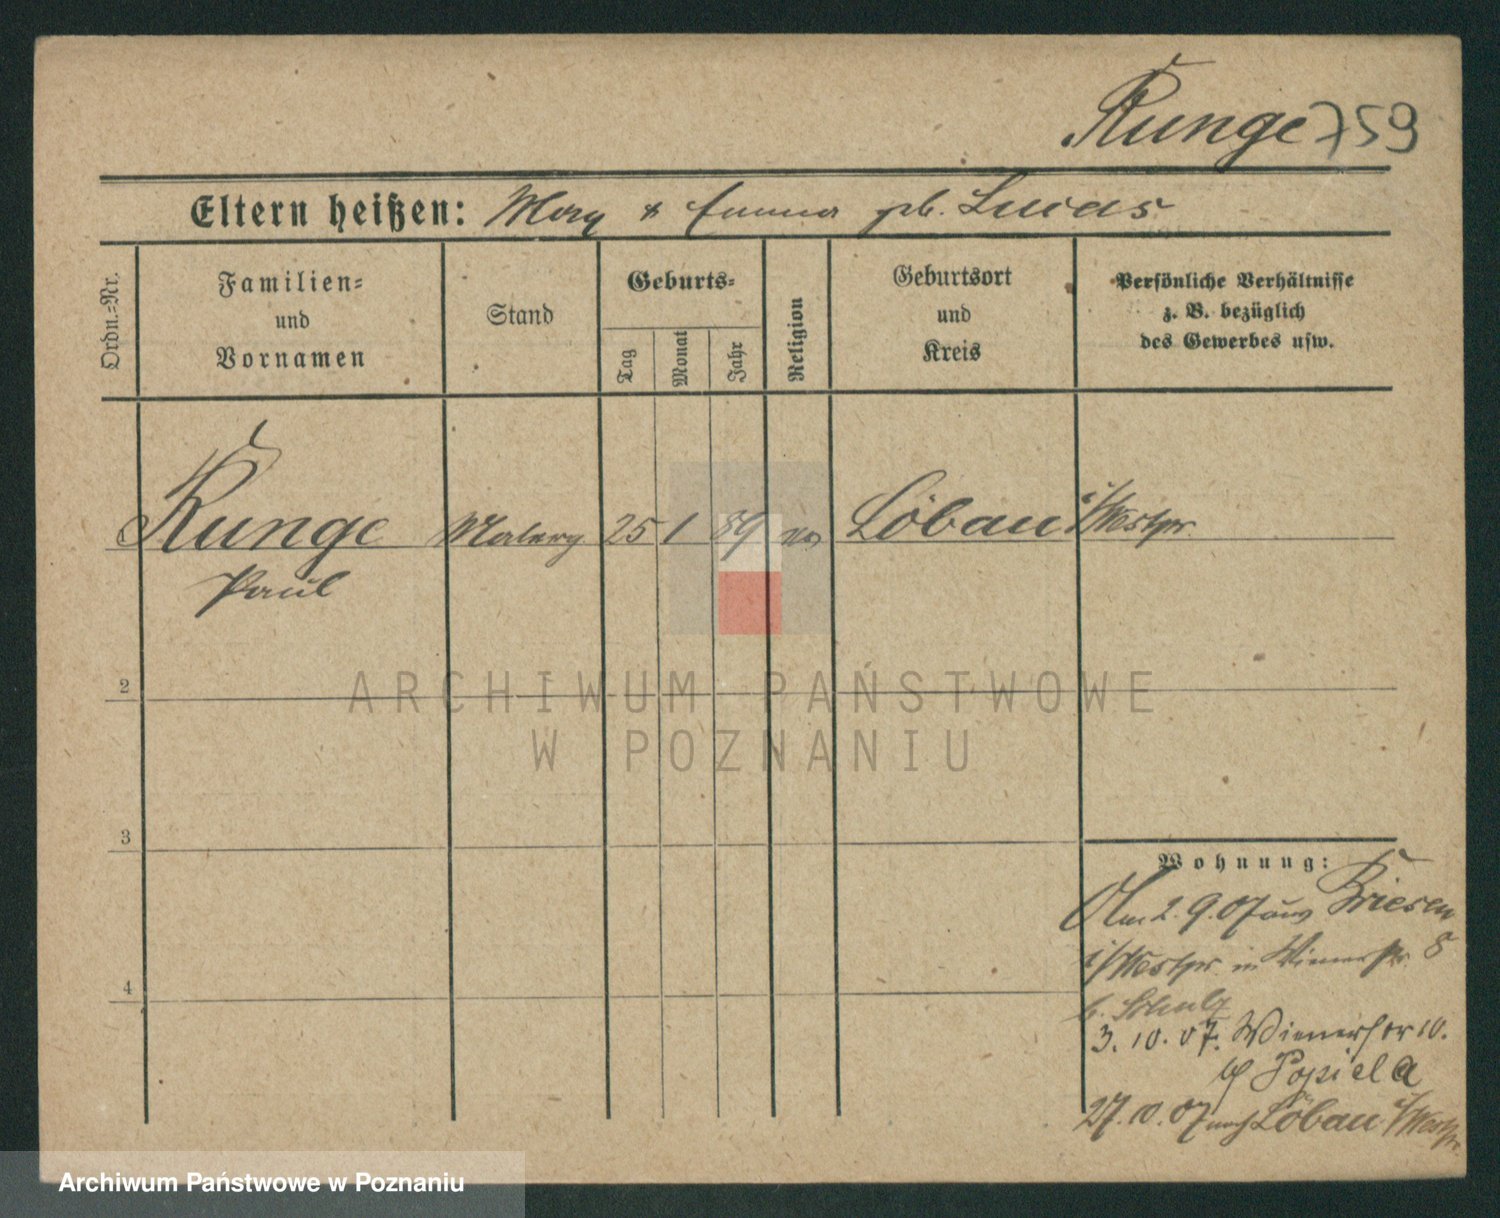 Runge 759
Eltern heißen: Max & Emma geb. Lucas
Ordn.-Nr.
Familien-
und
Vornamen
Stand
Geburts-
Tag
Monat
Jahr
Religion
Geburtsort
und
Kreis
Persönliche Verhältnisse
z. B. bezüglich
des Gewerbes usw.
Runge Malerg. 25 1 89 Löbau i/Westpr.
Paul
2
ARCHIWUM PAŃSTWOWE
W POZNANIU
3
Wohnung:
Am 2.9.07 aus Briesen
i/Westpr. in 8
b. Schulz
3.10.07. 10.
bei Popiela
27.10.07 nach Löbau i/Westpr.
4
Archiwum Państwowe w Poznaniu